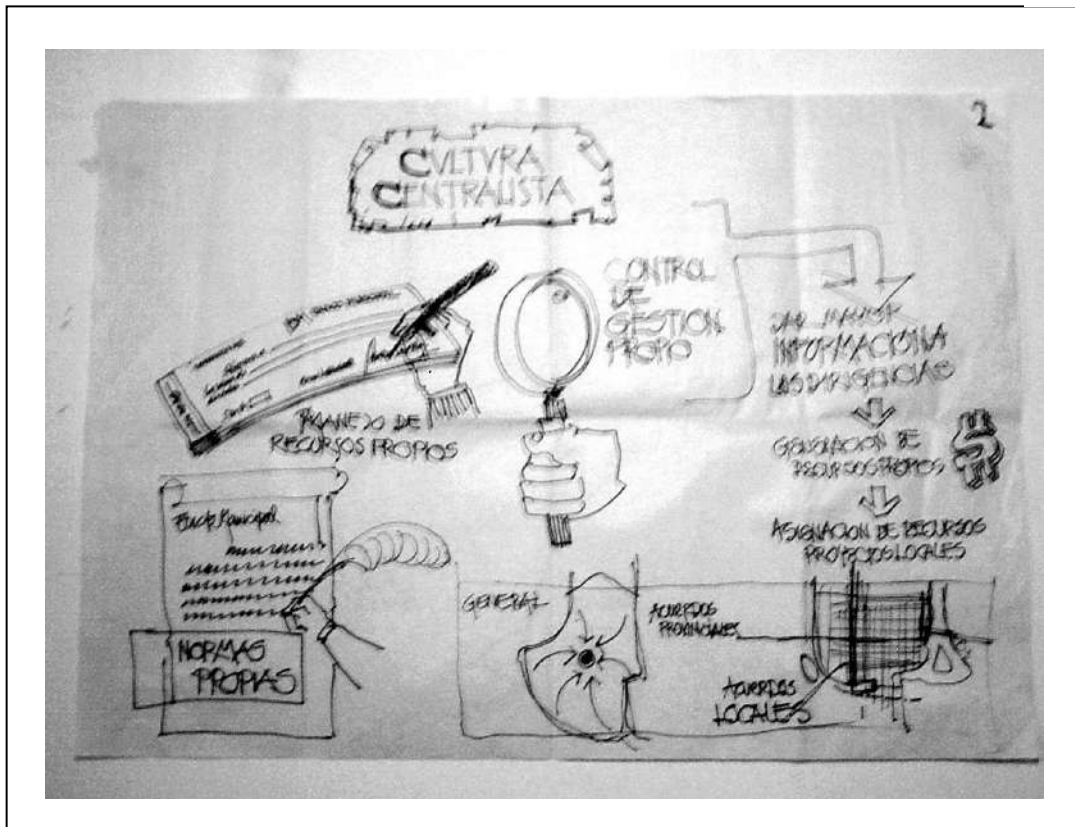 2
CVLTVRA
CENTRALISTA
CONTROL
DE
GESTION
PROPIO
DAR MAYOR
INFORMACION A
LAS DIRIGENCIAS
MANEJO DE
RECURSOS PROPIOS
GENERACION DE
RECURSOS PROPIOS
$
ASIGNACION DE RECURSOS
PROYECTOS LOCALES
NORMAS
PROPIAS
GENERAL
ACUERDOS
PROVINCIALES
ACUERDOS
LOCALES